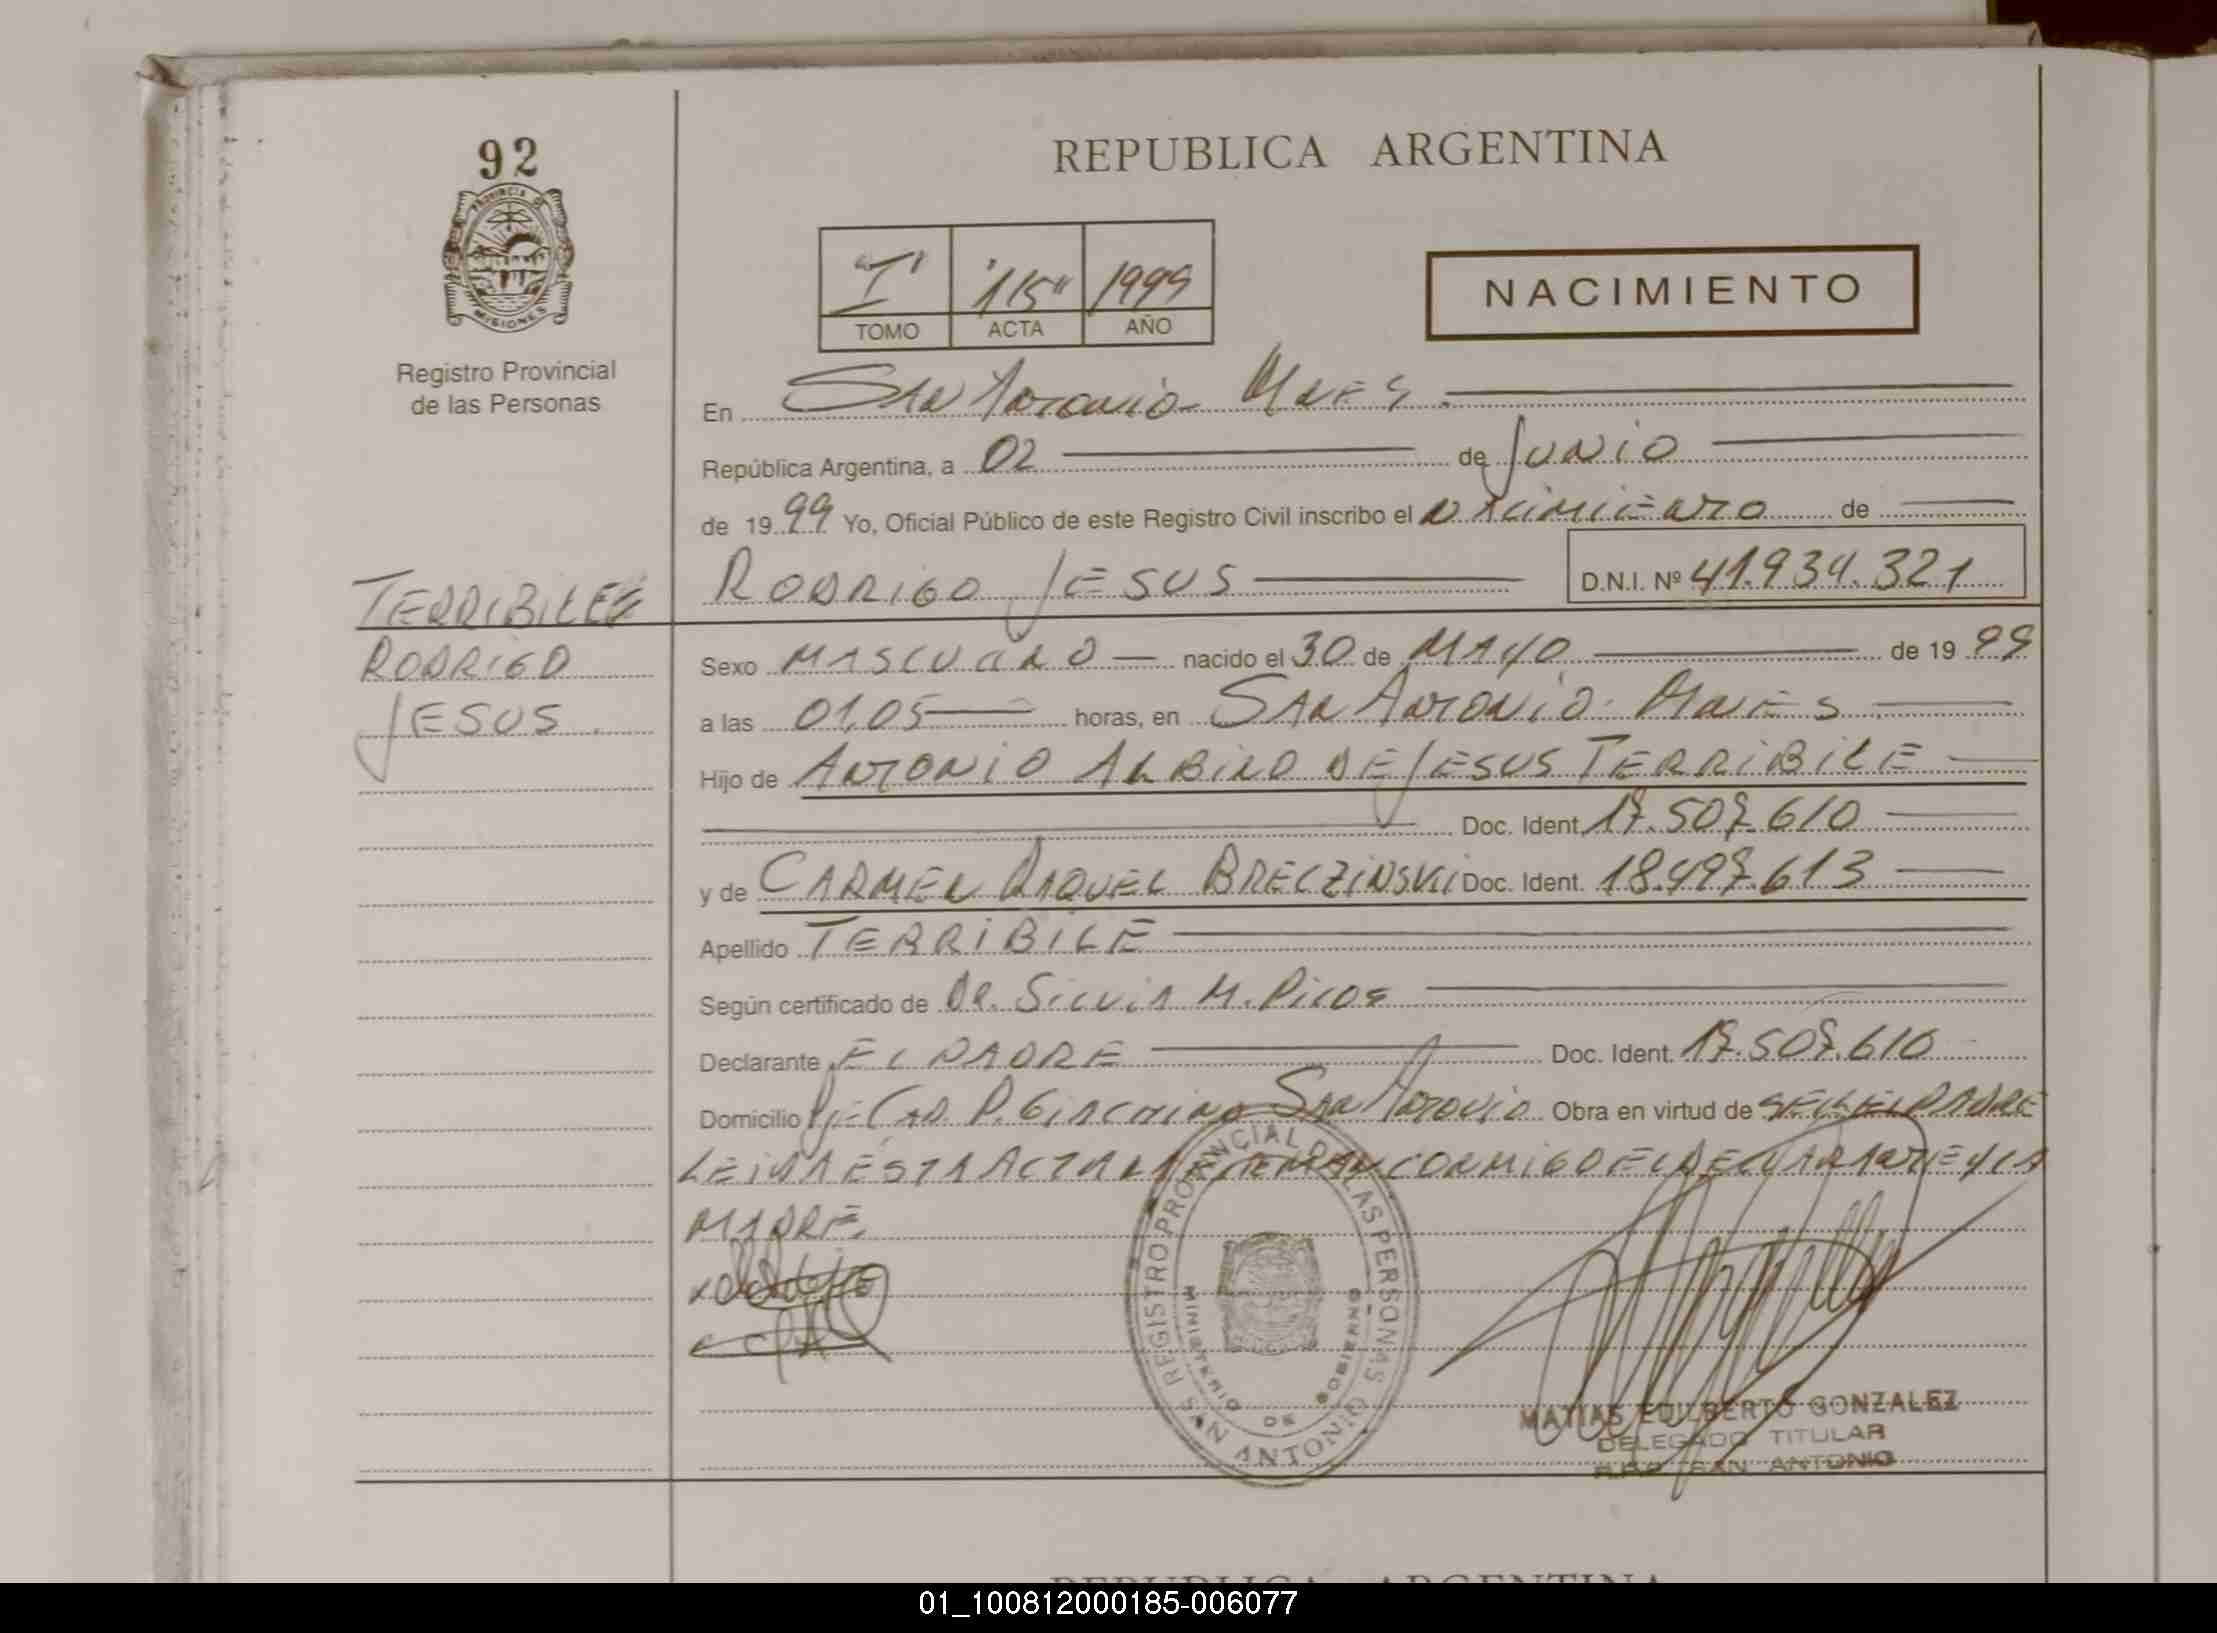 92
PROVINCIA DE
MISIONES
Registro Provincial
de las Personas
REPUBLICA ARGENTINA
"I" "115" 1999
TOMO ACTA AÑO
NACIMIENTO
En San Antonio Mnes.
República Argentina, a 02 de Junio
de 1999 Yo, Oficial Público de este Registro Civil inscribo el nacimiento de
RODRIGO JESUS D.N.I. Nº 41.934.321
TERRIBILE
RODRIGO
JESUS.
Sexo MASCULINO nacido el 30 de MAYO de 1999
a las 01,05 horas, en SAN ANTONIO. Mnes
Hijo de ANTONIO ALBINO DE JESUS TERRIBILE
Doc. Ident. 17.507.610
y de CARMEN RAQUEL BRECZINSKI Doc. Ident. 18.497.613
Apellido TERRIBILE
Según certificado de Dr. Silvia M.
Declarante EL PADRE Doc. Ident. 17.507.610
Domicilio San Antonio Obra en virtud de SER EL PADRE
LEIDA ESTA ACTA LA FIRMAN CONMIGO EL DECLARANTE Y LA
MADRE.
REGISTRO PROVINCIAL DE LAS PERSONAS
MINISTERIO DE GOBIERNO
SAN ANTONIO
MATIAS EDILBERTO GONZALEZ
DELEGADO TITULAR
R.P.P. SAN ANTONIO
REPUBLICA ARGENTINA
01_100812000185-006077